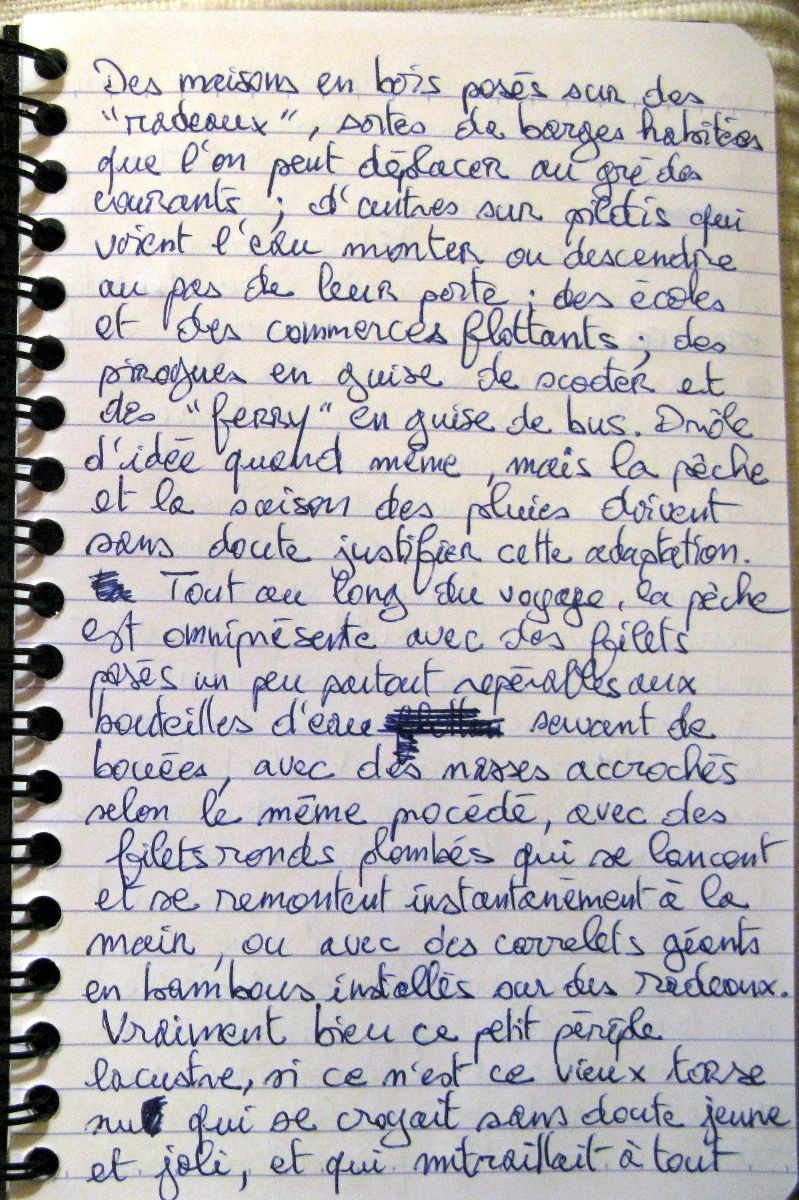 Des maisons en bois posés sur des
"radeaux", sortes de barges habitées
que l'on peut déplacer au gré des
courants ; d'autres sur pilotis qui
voient l'eau monter ou descendre
au pas de leur porte ; des écoles
et des commerces flottants ; des
pirogues en guise de scooter et
des "ferry" en guise de bus. Drôle
d'idée quand même, mais la pêche
et la saison des pluies doivent
sans doute justifier cette adaptation.
Tout au long du voyage, la pêche
est omniprésente avec des filets
posés un peu partout repérables aux
bouteilles d'eau servant de
bouées, avec des nasses accrochés
selon le même procédé, avec des
filets ronds plombés qui se lancent
et se remontent instantanément à la
main, ou avec des carrelets géants
en bambous installés sur des radeaux.
Vraiment bien ce petit périple
lacustre, si ce n'est ce vieux torse
nu qui se croyait sans doute jeune
et joli, et qui mitraillait à tout